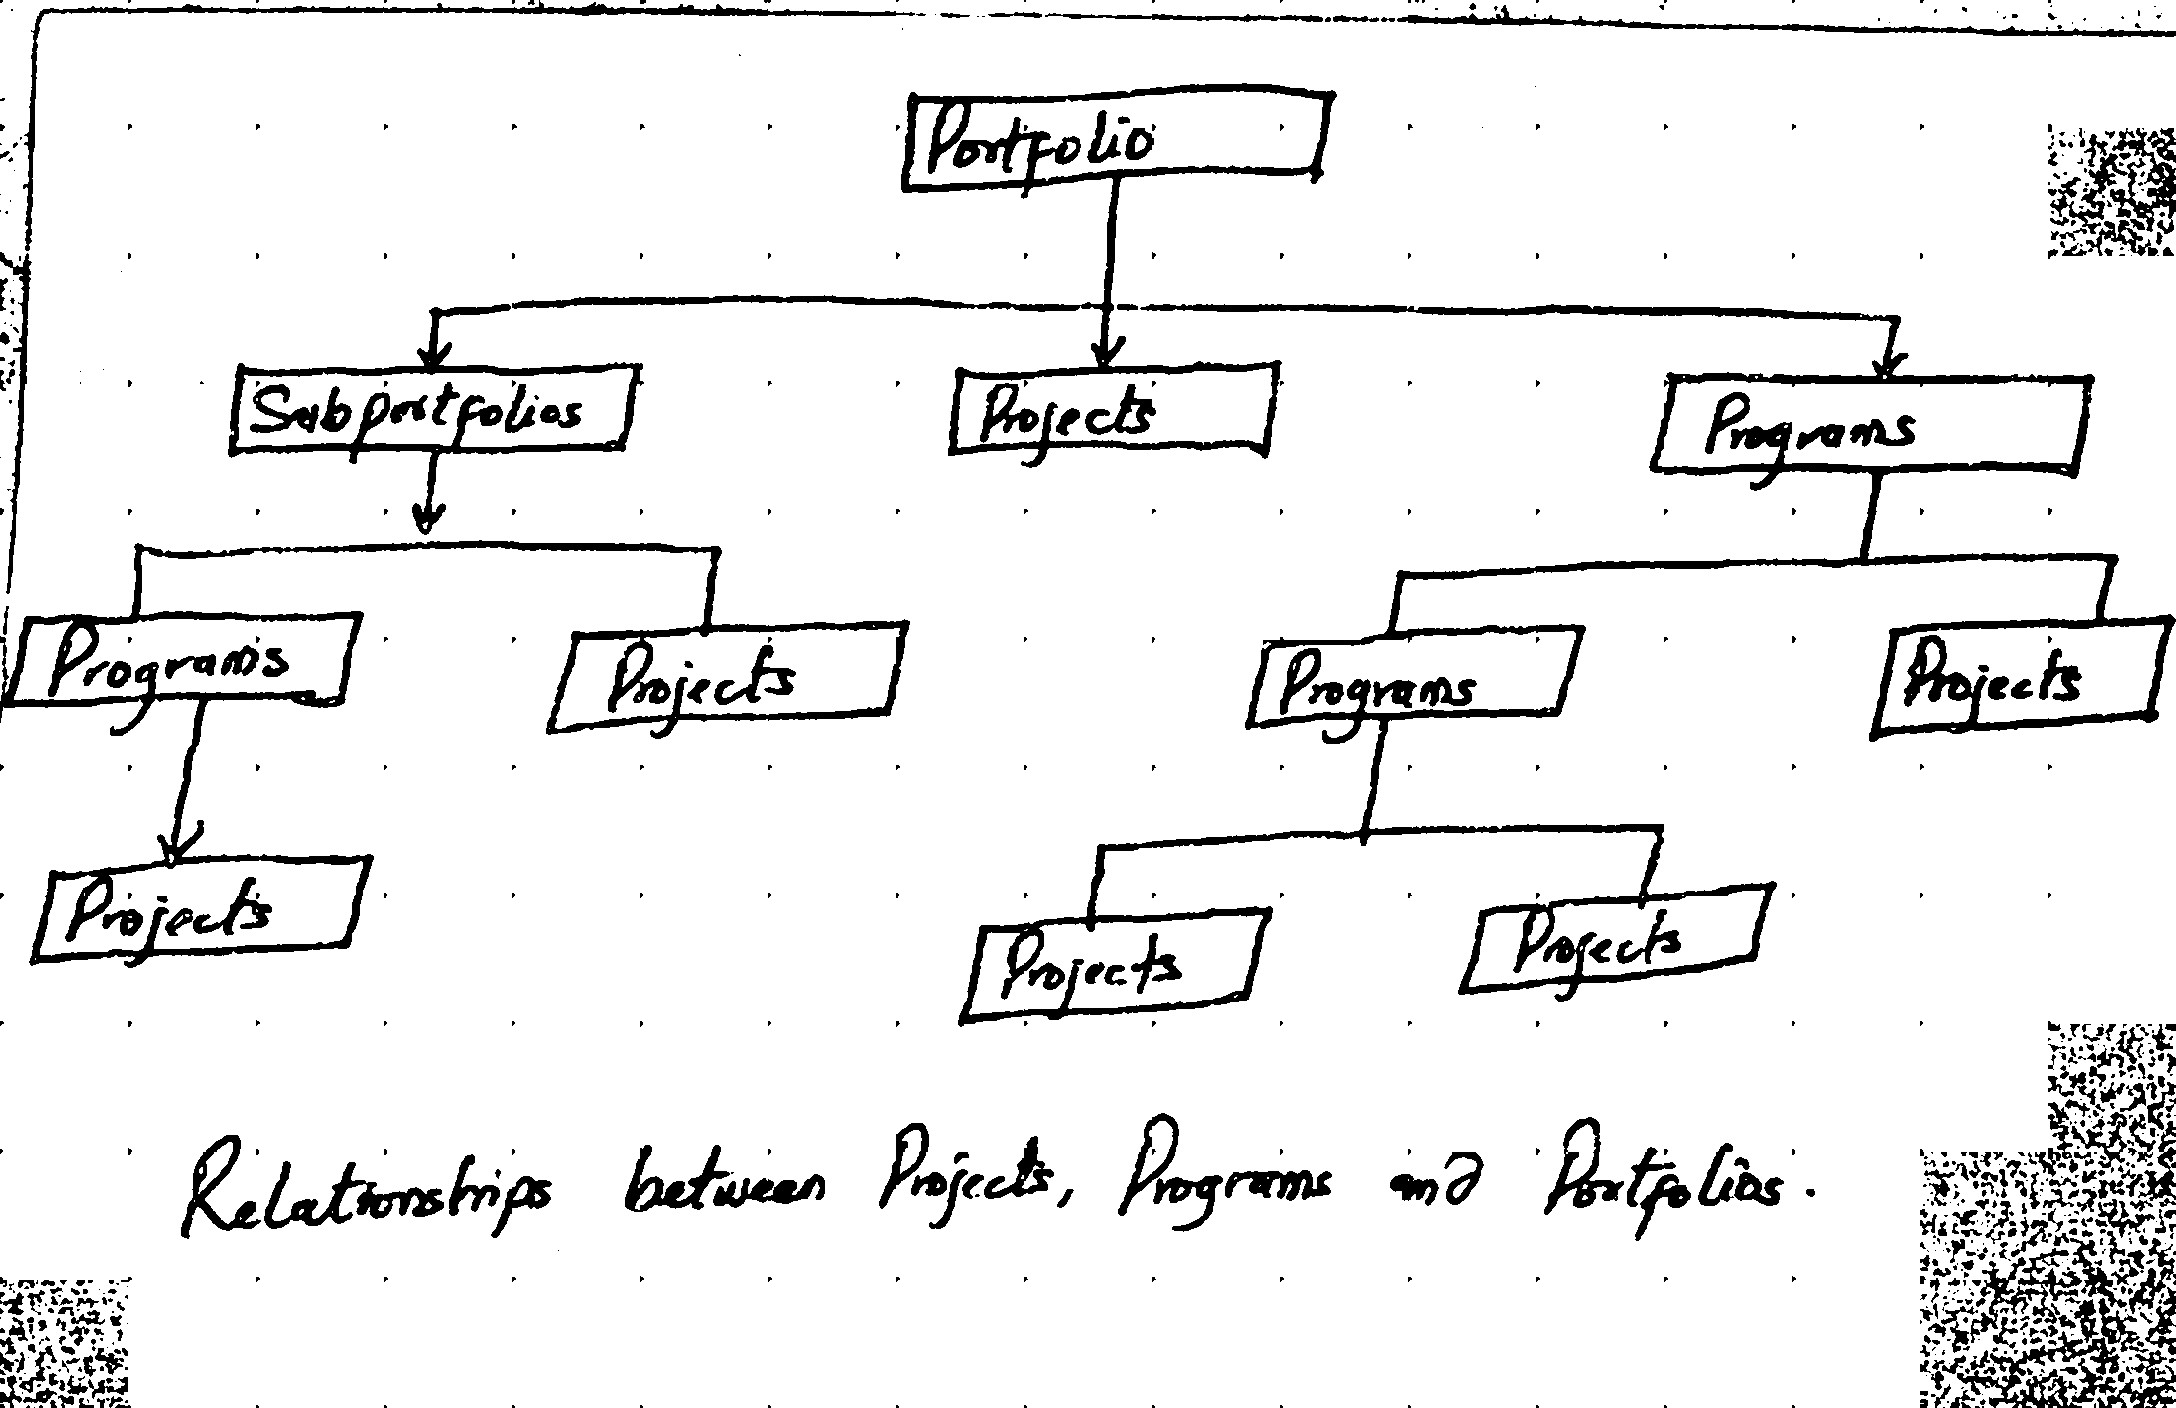 Portfolio
Subportfolios
Projects
Programs
Programs
Projects
Programs
Projects
Projects
Projects
Projects
Relationships between Projects, Programs and Portfolios.